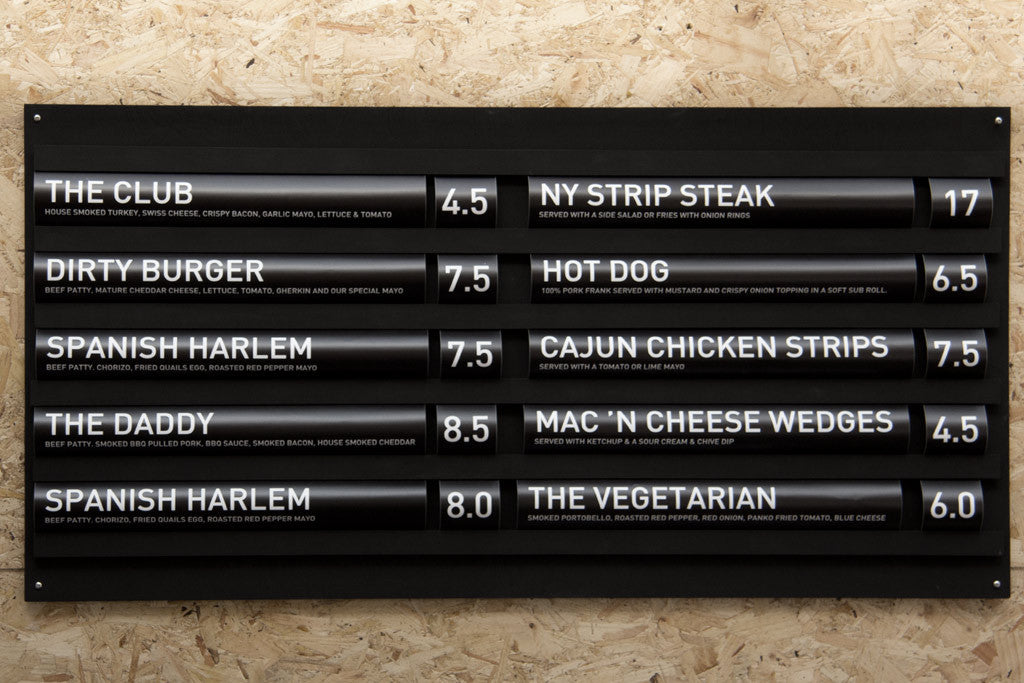 THE CLUB 4.5
HOUSE SMOKED TURKEY, SWISS CHEESE, CRISPY BACON, GARLIC MAYO, LETTUCE & TOMATO
DIRTY BURGER 7.5
BEEF PATTY, MATURE CHEDDAR CHEESE, LETTUCE, TOMATO, GHERKIN AND OUR SPECIAL MAYO
SPANISH HARLEM 7.5
BEEF PATTY. CHORIZO, FRIED QUAILS EGG, ROASTED RED PEPPER MAYO
THE DADDY 8.5
BEEF PATTY. SMOKED BBQ PULLED PORK, BBQ SAUCE, SMOKED BACON, HOUSE SMOKED CHEDDAR
SPANISH HARLEM 8.0
BEEF PATTY. CHORIZO, FRIED QUAILS EGG, ROASTED RED PEPPER MAYO
NY STRIP STEAK 17
SERVED WITH A SIDE SALAD OR FRIES WITH ONION RINGS
HOT DOG 6.5
100% PORK FRANK SERVED WITH MUSTARD AND CRISPY ONION TOPPING IN A SOFT SUB ROLL.
CAJUN CHICKEN STRIPS 7.5
SERVED WITH A TOMATO OR LIME MAYO
MAC 'N CHEESE WEDGES 4.5
SERVED WITH KETCHUP & A SOUR CREAM & CHIVE DIP
THE VEGETARIAN 6.0
SMOKED PORTOBELLO, ROASTED RED PEPPER, RED ONION, PANKO FRIED TOMATO, BLUE CHEESE